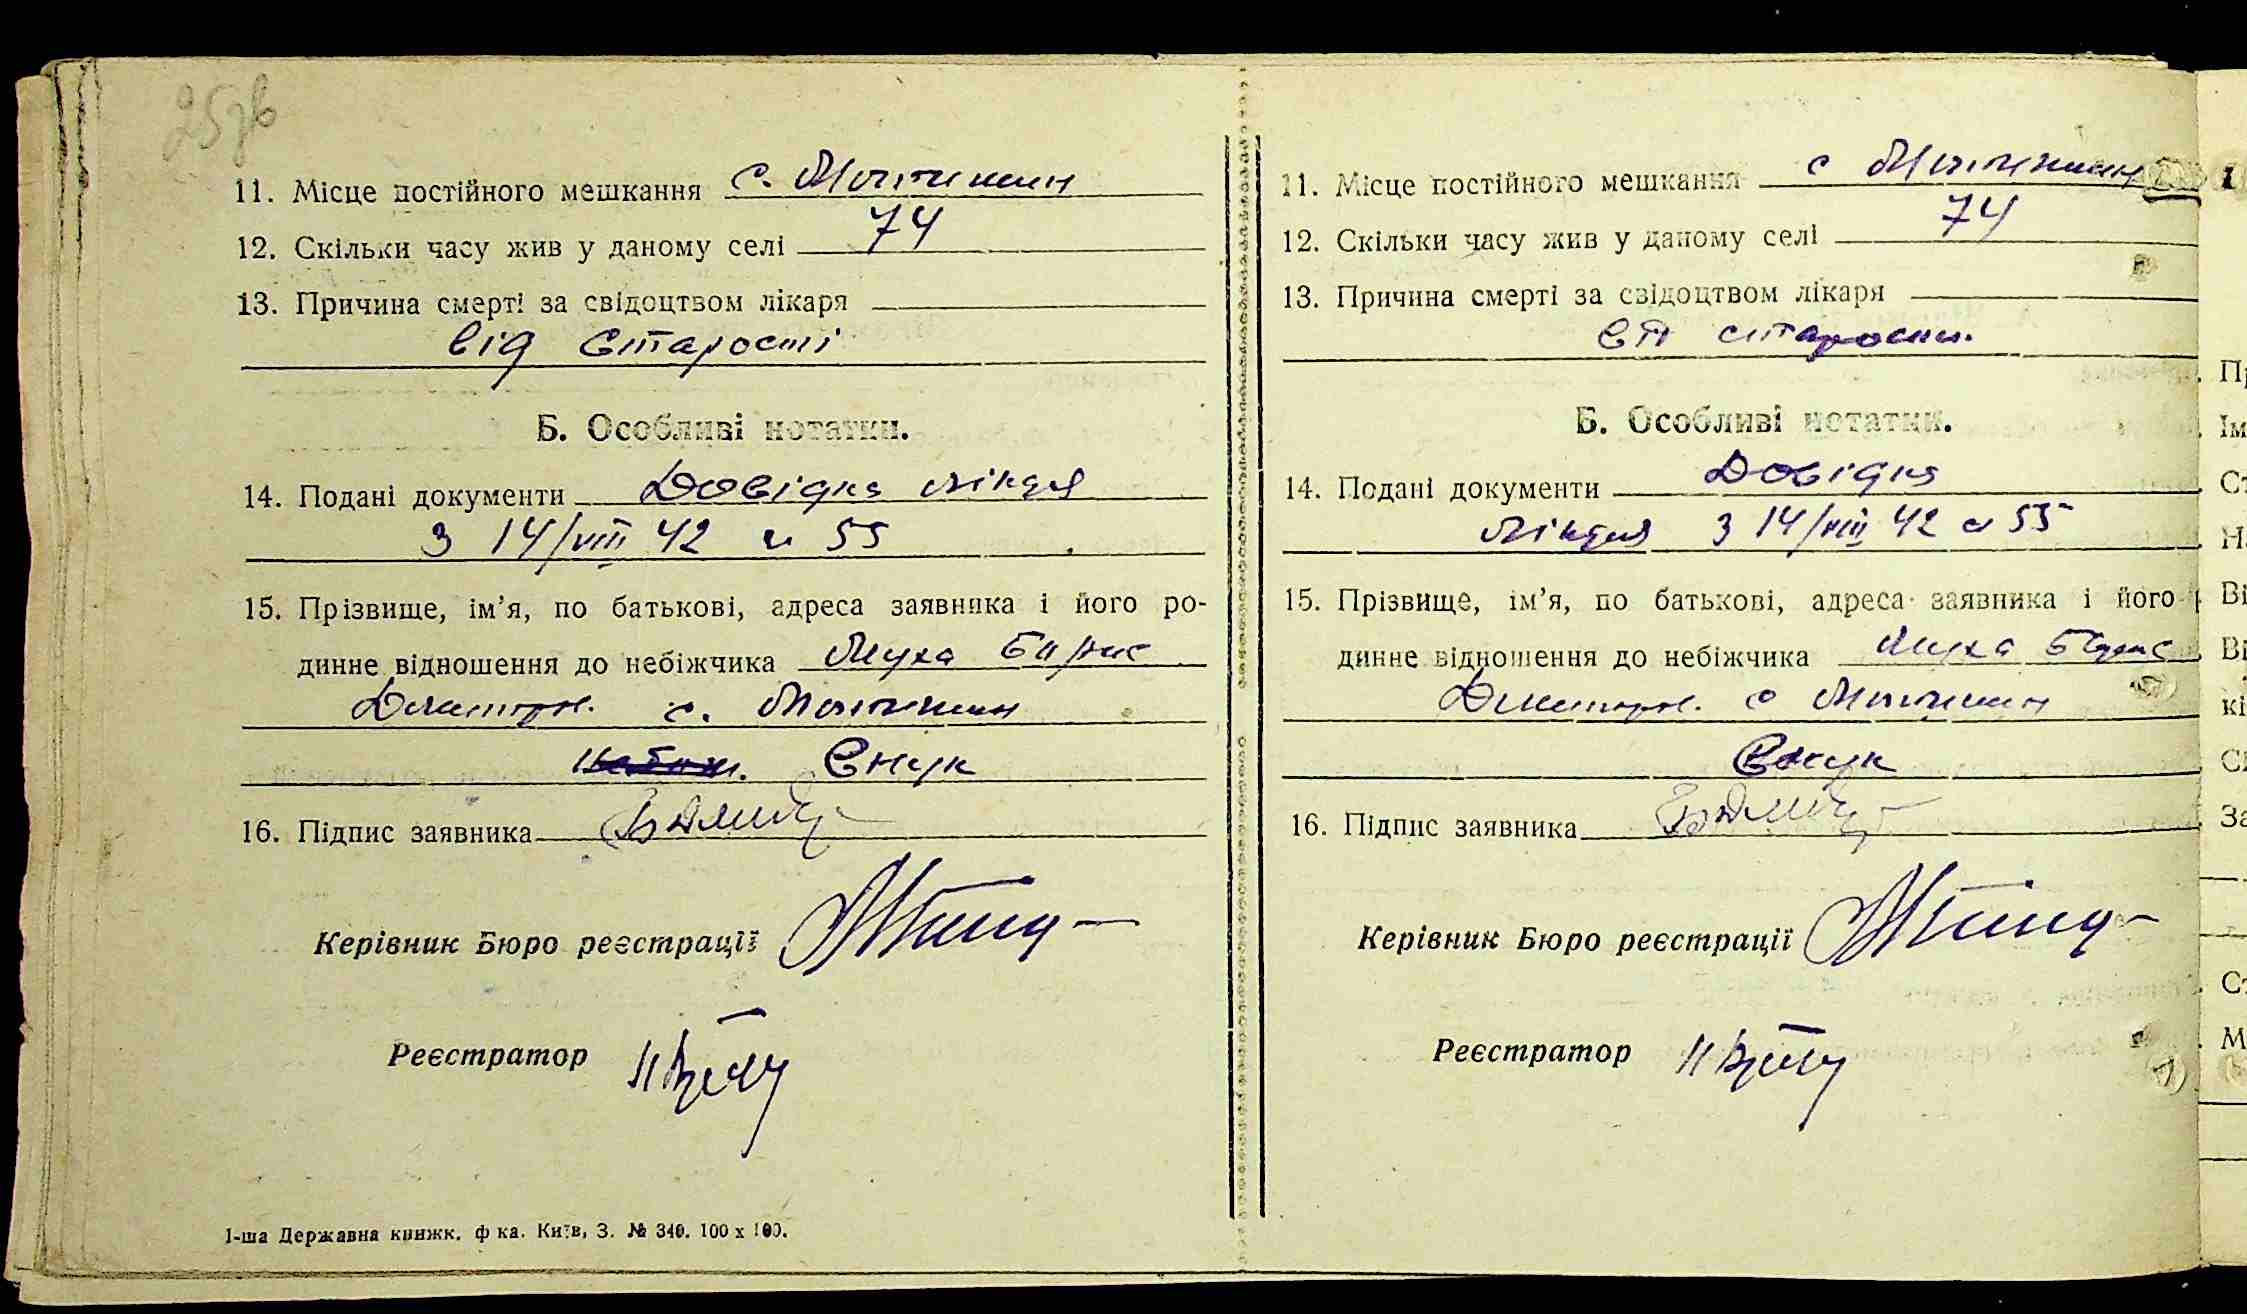 25зв
11. Місце постійного мешкання с. Мотижин
12. Скільки часу жив у даному селі 74
13. Причина смерті за свідоцтвом лікаря
від старості
Б. Особливі нотатки.
14. Подані документи Довідка лікаря
з 14/VIII 42 № 55
15. Прізвище, ім’я, по батькові, адреса заявника і його ро-
динне відношення до небіжчика Муха Борис
Дмитров. с. Мотижин
Внук
16. Підпис заявника
Керівник Бюро реєстрації
Реєстратор
1-ша Державна книжк. ф ка. Київ, З. № 340. 100 х 100.
11. Місце постійного мешкання с Мотижин
12. Скільки часу жив у даному селі 74
13. Причина смерті за свідоцтвом лікаря
від старости.
Б. Особливі нотатки.
14. Подані документи Довідка
лікаря з 14/VIII 42 № 55
15. Прізвище, ім’я, по батькові, адреса заявника і його
динне відношення до небіжчика Муха Борис
Дмитров. с Мотижин
Внук
16. Підпис заявника
Керівник Бюро реєстрації
Реєстратор